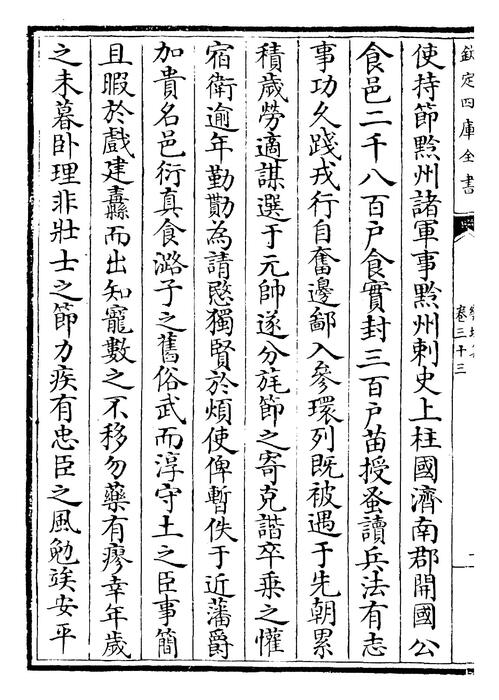 欽定四庫全書
卷三十三
使持節黔州諸軍事黔州刺史上柱國濟南郡開國公
食邑二千八百戶食實封三百戶苗授蚤讀兵法有志
事功久踐戎行自奮邊鄙入參環列既被遇于先朝累
積歲勞適謀選于元帥遂分旄節之寄克諧卒乗之懽
宿衛逾年勤勩為請愍獨賢於煩使俾暫佚于近藩爵
加貴名邑衍真食潞子之舊俗武而淳守土之臣事簡
且暇於戲建纛而出知寵數之不移勿藥有瘳幸年歲
之未暮卧理非壯士之節力疾有忠臣之風勉竢安平